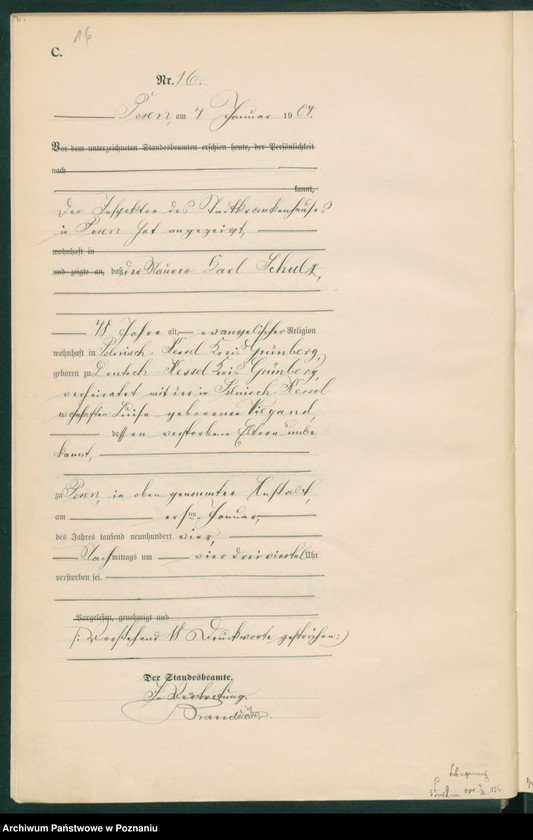 16
C.
Nr. 16.
Posen, am 4 Januar 1904.
Vor dem unterzeichneten Standesbeamten erschien heute, der Persönlichkeit
nach
kannt,
Der Inspektor des Stadtkrankenhauses
in Posen hat angezeigt,
wohnhaft in
und zeigte an, daß der Maurer Karl Schulz,
48 Jahre alt, evangelischer Religion
wohnhaft in Polnisch Kessel Kreis Grünberg,
geboren zu Deutsch Kessel Kreis Grünberg,
verheiratet mit der in Polnisch Kessel
wohnhaften Luise geborenen Wiegand,
dessen verstorbene Eltern unbe
kannt,
zu Posen, in oben genannter Anstalt,
am ersten Januar,
des Jahres tausend neunhundert vier,
Nachmittags um vier dreiviertel Uhr
verstorben sei.
Vorgelesen, genehmigt und
/: Vorstehend Druckworte gestrichen :/
Der Standesbeamte.
In Vertretung.
Archiwum Państwowe w Poznaniu